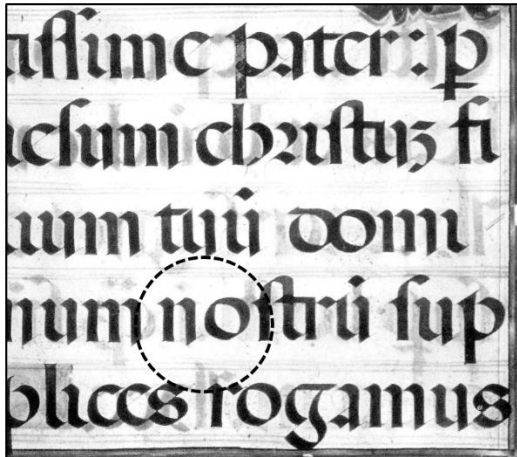 tiſſime pater : ꝑ
ieſum chriſtuʒ fi
lium tuū domi
num noſtrū ſup
plices rogamus